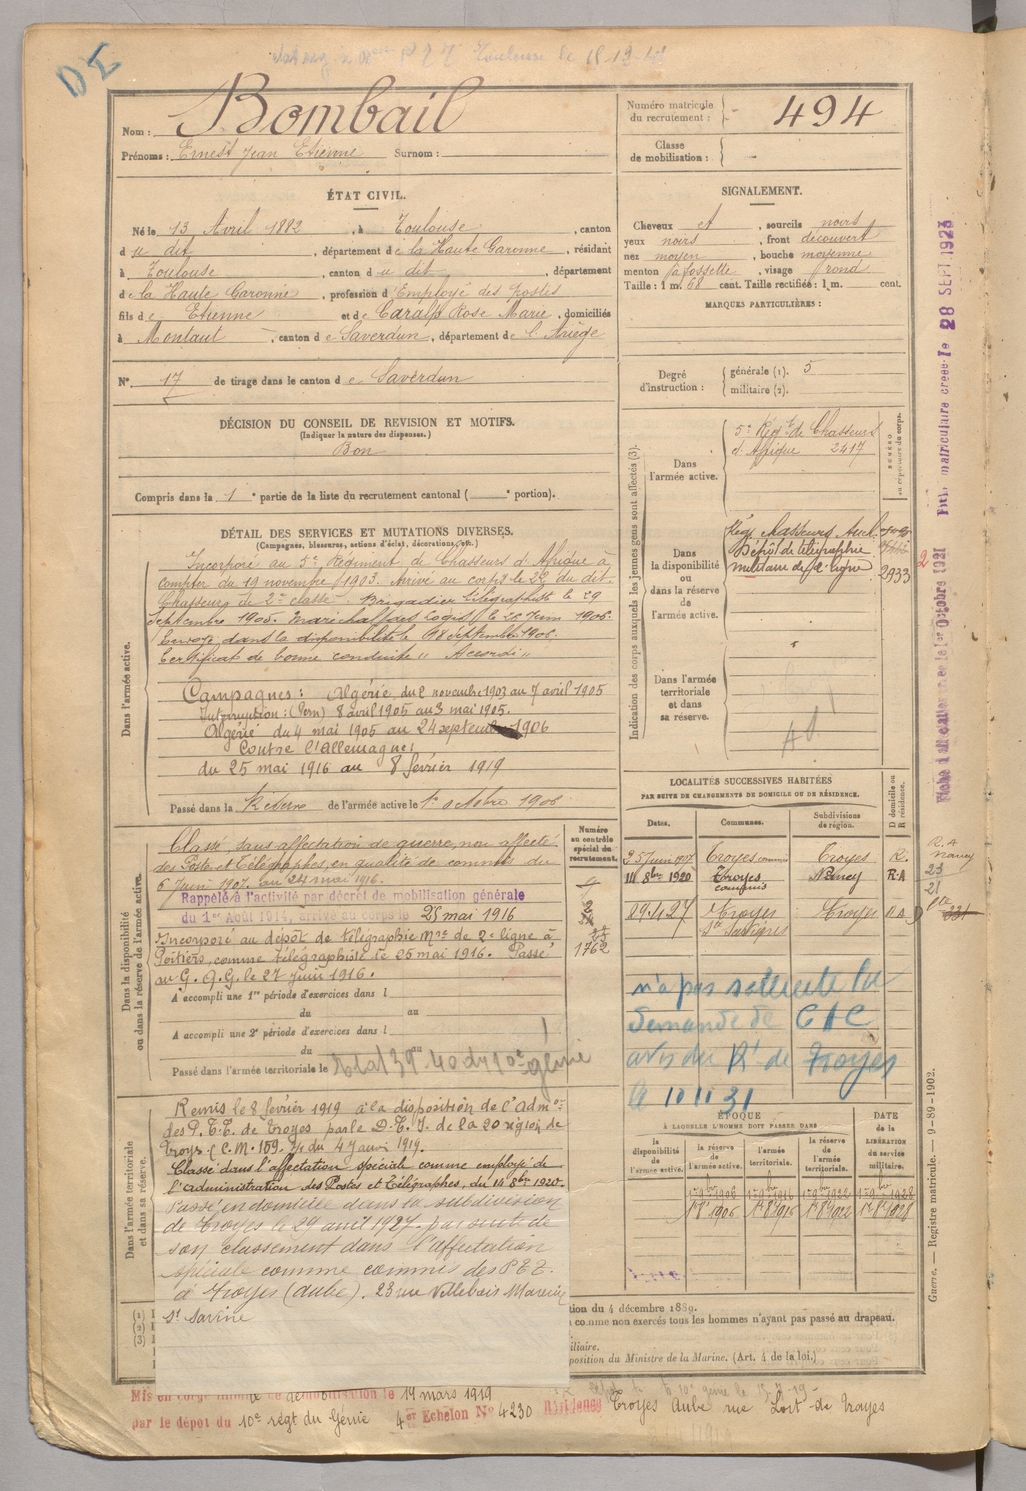 DE
Toulouse le
Nom : Bombail
Prénoms : Ernest Jean Etienne Surnom :
Numéro matricule du recrutement : 494
Classe de mobilisation :
ÉTAT CIVIL.
Né le 13 Avril 1882, à Toulouse, canton
du dit, département de la Haute Garonne, résidant
à Toulouse, canton du dit, département
de la Haute Garonne, profession d'Employé des Postes
fils de Etienne et de Caralp Rose Marie, domiciliés
à Montaut, canton de Saverdun, département de l'Ariège
N° 17 de tirage dans le canton de Saverdun
SIGNALEMENT.
Cheveux et, sourcils noirs
yeux noirs, front découvert
nez moyen, bouche moyenne
menton fossette, visage rond
Taille : 1 m. 68 cent. Taille rectifiée : 1 m. cent.
MARQUES PARTICULIÈRES :
Degré d'instruction : générale (1). 5
militaire (2).
DÉCISION DU CONSEIL DE REVISION ET MOTIFS.
(Indiquer la nature des dispenses.)
Bon
Compris dans la 1e partie de la liste du recrutement cantonal ( e portion).
DÉTAIL DES SERVICES ET MUTATIONS DIVERSES.
(Campagnes, blessures, actions d'éclat, décorations, etc.)
Dans l'armée active.
Incorporé au 5e Régiment de Chasseurs d'Afrique à
compter du 19 novembre 1903. Arrivé au corps le du dit.
Chasseur de 2e classe. Brigadier télégraphiste le 29
Septembre 1905. Maréchal des logis le Juin 1906.
Envoyé dans la disponibilité le 18 septembre 1906.
Certificat de bonne conduite "Accordé"
Campagnes : Algérie, du 2 novembre 1903 au 7 avril 1905
Interruption : 8 avril 1905 au 3 mai 1905.
Algérie du 4 mai 1905 au 24 septembre 1906
Contre l'Allemagne :
du 25 mai 1916 au 8 février 1919
Passé dans la Réserve de l'armée active le 1er octobre 1906
Indication des corps auxquels les jeunes gens sont affectés (3).
NUMÉRO au répertoire du corps.
Dans l'armée active.
5e Régt de Chasseurs
d'Afrique 2417
Dans la disponibilité ou dans la réserve de l'armée active.
Dépôt de télégraphie
militaire de 2e ligne 2933
2
Dans l'armée territoriale et dans sa réserve.
Fiche matriculaire créée le 28 SEPT. 1923
Octobre 1921
Dans la disponibilité ou dans la réserve de l'armée active.
Numéro au contrôle spécial du recrutement.
Classé, sans affectation de guerre, non affecté
des Postes et Télégraphes, en qualité de commis du
6 Juin 1907 au 24 mai 1916.
Rappelé à l'activité par décret de mobilisation générale
du 1er Août 1914, arrivé au corps le 25 mai 1916
Incorporé au dépôt de télégraphie Mre de 2e ligne à
Poitiers, comme télégraphiste le 25 mai 1916. Passé
au G. Q. G. le 27 juin 1916.
1762
A accompli une 1re période d'exercices dans l
du au
A accompli une 2e période d'exercices dans l
du au
Passé dans l'armée territoriale le
génie
LOCALITÉS SUCCESSIVES HABITÉES
PAR SUITE DE CHANGEMENTS DE DOMICILE OU DE RÉSIDENCE.
Dates. Communes. Subdivisions de région. D domicile ou R résidence.
Juin 1907 Troyes commis Troyes R.
14 8bre 1920 Troyes commis Nancy R.A
29.4.27 Troyes Ste Savine Troyes R A
R. A
Nancy
23
21
231
n'a pas sollicité la
demande de
avis du Rt de Troyes
10 11 31
Dans l'armée territoriale et dans sa réserve.
Remis le 8 février 1919 à la disposition de l'Admon
des P.T.T. de Troyes par le D.E.I. de la 20 région de
Troyes (C.M. 159 du 4 Janv 1919.
Classé dans l'affectation spéciale comme employé de
l'administration des Postes et Télégraphes, du 14 8bre 1920.
Passé, en domicile dans la subdivision
de Troyes le 29 avril 1927 par suite de
son classement dans l'affectation
spéciale comme commis des P.T.T.
à Troyes (Aube). 23 rue Villebois Mareuil
St Savine
ÉPOQUE
À LAQUELLE L'HOMME DOIT PASSER DANS
DATE DE LA LIBÉRATION DU SERVICE MILITAIRE.
la disponibilité de l'armée active. la réserve de l'armée active. l'armée territoriale. la réserve de l'armée territoriale.
1er 8bre 1906 1er 8bre 1916 1er 8bre 1922 1er 8bre 1928
(1)
(2)
(3)
tion du 4 décembre 1889.
comme non exercés tous les hommes n'ayant pas passé au drapeau.
iliaire.
position du Ministre de la Marine. (Art. 4 de la loi.)
Guerre. — Registre matricule. — 9-89-1902.
Mis en congé illimité de démobilisation le 19 mars 1919
par le dépôt du 10e régt du Génie 4er Echelon N° 4230 Résidence Troyes Aube rue